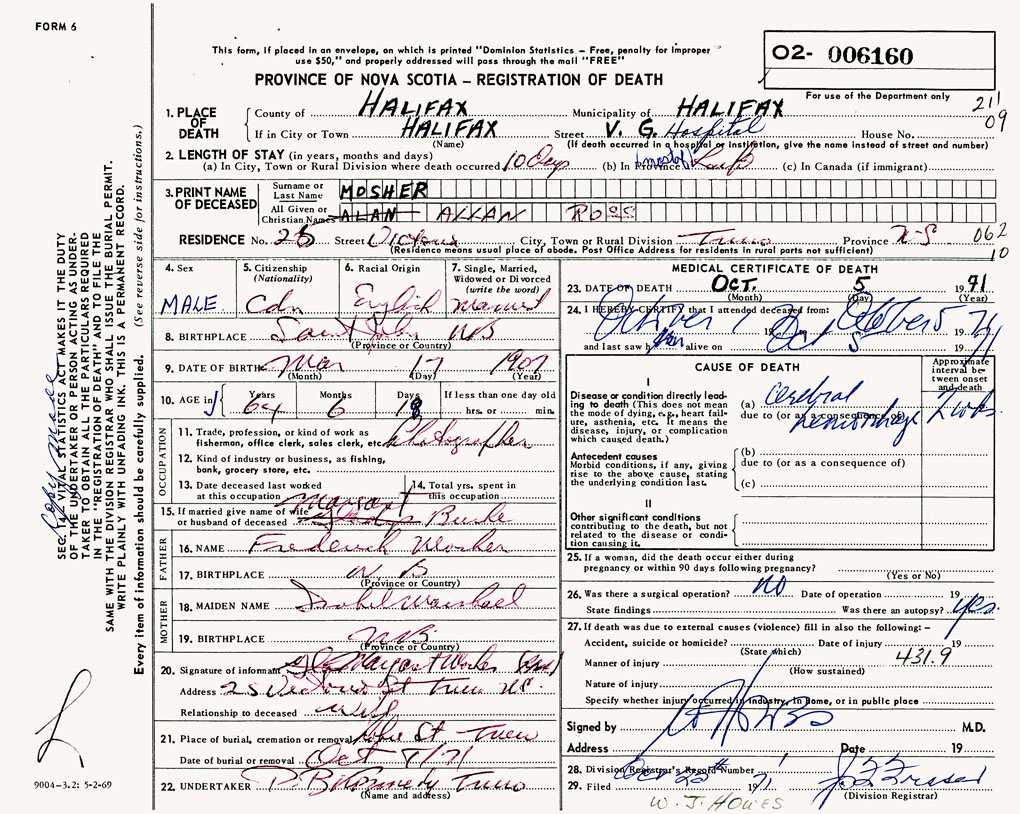 FORM 6
This form, if placed in an envelope, on which is printed "Dominion Statistics – Free, penalty for improper
use $50," and properly addressed will pass through the mail "FREE"
PROVINCE OF NOVA SCOTIA – REGISTRATION OF DEATH
02- 006160
For use of the Department only
211
09
1. PLACE OF DEATH
County of HALIFAX Municipality of HALIFAX
If in City or Town HALIFAX Street V. G. Hospital House No.
(Name) (If death occurred in a hospital or institution, give the name instead of street and number)
2. LENGTH OF STAY (in years, months and days)
(a) In City, Town or Rural Division where death occurred 10 Days (b) In Province (most of) Life (c) In Canada (if immigrant)
3. PRINT NAME OF DECEASED
Surname or Last Name MOSHER
All Given or Christian Names ALAN ALLAN ROSS
RESIDENCE No. 25 Street Victoria City, Town or Rural Division Truro Province N-S 062
(Residence means usual place of abode. Post Office Address for residents in rural ports not sufficient) 10
4. Sex
MALE
5. Citizenship (Nationality)
Cdn
6. Racial Origin
English
7. Single, Married, Widowed or Divorced (write the word)
Married
8. BIRTHPLACE Saint John NB
(Province or Country)
9. DATE OF BIRTH Mar 17 1907
(Month) (Day) (Year)
10. AGE in Years Months Days If less than one day old
64 6 18 hrs. or min.
OCCUPATION
11. Trade, profession, or kind of work as
fisherman, office clerk, sales clerk, etc. Photographer
12. Kind of industry or business, as fishing,
bank, grocery store, etc.
13. Date deceased last worked
at this occupation
14. Total yrs. spent in
this occupation
15. If married give name of wife Margaret
or husband of deceased Burke
FATHER
16. NAME Frederick Mosher
17. BIRTHPLACE NB
(Province or Country)
MOTHER
18. MAIDEN NAME Isobel
19. BIRTHPLACE NB
(Province or Country)
20. Signature of informant Margaret Mosher (Mrs)
Address 25 Victoria St Truro NS.
Relationship to deceased Wife
21. Place of burial, cremation or removal St - Truro
Date of burial or removal Oct 8/71
22. UNDERTAKER Truro
(Name and address)
MEDICAL CERTIFICATE OF DEATH
23. DATE OF DEATH OCT. 5 1971
(Month) (Day) (Year)
24. I HEREBY CERTIFY that I attended deceased from:
October 1 19 to October 5 19 71
and last saw him alive on Oct 5 19 71
CAUSE OF DEATH
Approximate interval between onset and death
I
Disease or condition directly leading to death (This does not mean the mode of dying, e.g., heart failure, asthenia, etc. It means the disease, injury, or complication which caused death.)
(a) Cerebral
due to (or as a consequence of)
hemorrhage 2 wks.
Antecedent causes
Morbid conditions, if any, giving rise to the above cause, stating the underlying condition last.
(b)
due to (or as a consequence of)
(c)
II
Other significant conditions
contributing to the death, but not related to the disease or condition causing it.
25. If a woman, did the death occur either during
pregnancy or within 90 days following pregnancy?
(Yes or No)
26. Was there a surgical operation? NO Date of operation 19
State findings Was there an autopsy? yes.
27. If death was due to external causes (violence) fill in also the following: –
Accident, suicide or homicide? Date of injury 19
(State which)
Manner of injury 431.9
(How sustained)
Nature of injury
Specify whether injury occurred in industry, in home, or in public place
Signed by M.D.
Address Date 19
28. Division Registrar's Record Number
29. Filed Oct 22nd 1971
(Division Registrar)
W. J. HOWES
SEC. 14. VITAL STATISTICS ACT MAKES IT THE DUTY
OF THE UNDERTAKER OR PERSON ACTING AS UNDER-
TAKER TO OBTAIN ALL THE PARTICULARS REQUIRED
IN THE "REGISTRATION OF DEATH" AND TO FILE THE
SAME WITH THE DIVISION REGISTRAR WHO SHALL ISSUE THE BURIAL PERMIT.
WRITE PLAINLY WITH UNFADING INK. THIS IS A PERMANENT RECORD.
Every item of information should be carefully supplied. (See reverse side for instructions.)
9004-3.2: 5-2-69